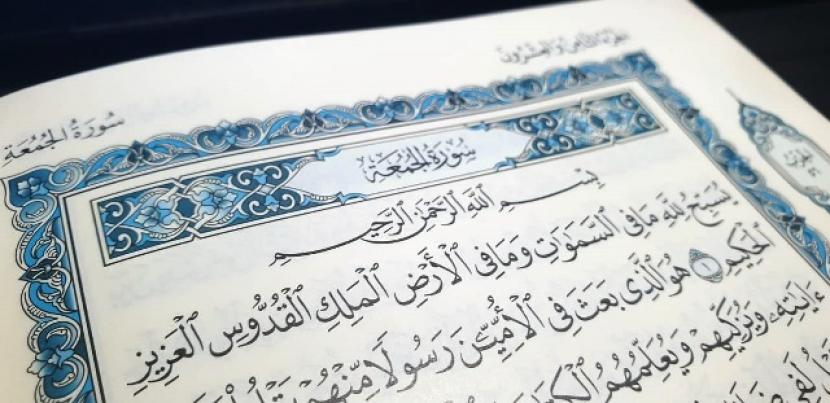 الجزء الثامن والعشرون
سورة الجمعة
سُورَةُ الجُمُعَة
بِسْمِ ٱللَّهِ ٱلرَّحْمَٰنِ ٱلرَّحِيمِ
يُسَبِّحُ لِلَّهِ مَا فِي ٱلسَّمَٰوَٰتِ وَمَا فِي ٱلْأَرْضِ ٱلْمَلِكِ ٱلْقُدُّوسِ ٱلْعَزِيزِ
ٱلْحَكِيمِ ١ هُوَ ٱلَّذِي بَعَثَ فِي ٱلْأُمِّيِّـۧنَ رَسُولًا مِّنْهُمْ
ءَايَٰتِهِۦ وَيُزَكِّيهِمْ وَيُعَلِّمُهُمُ
لَفِي